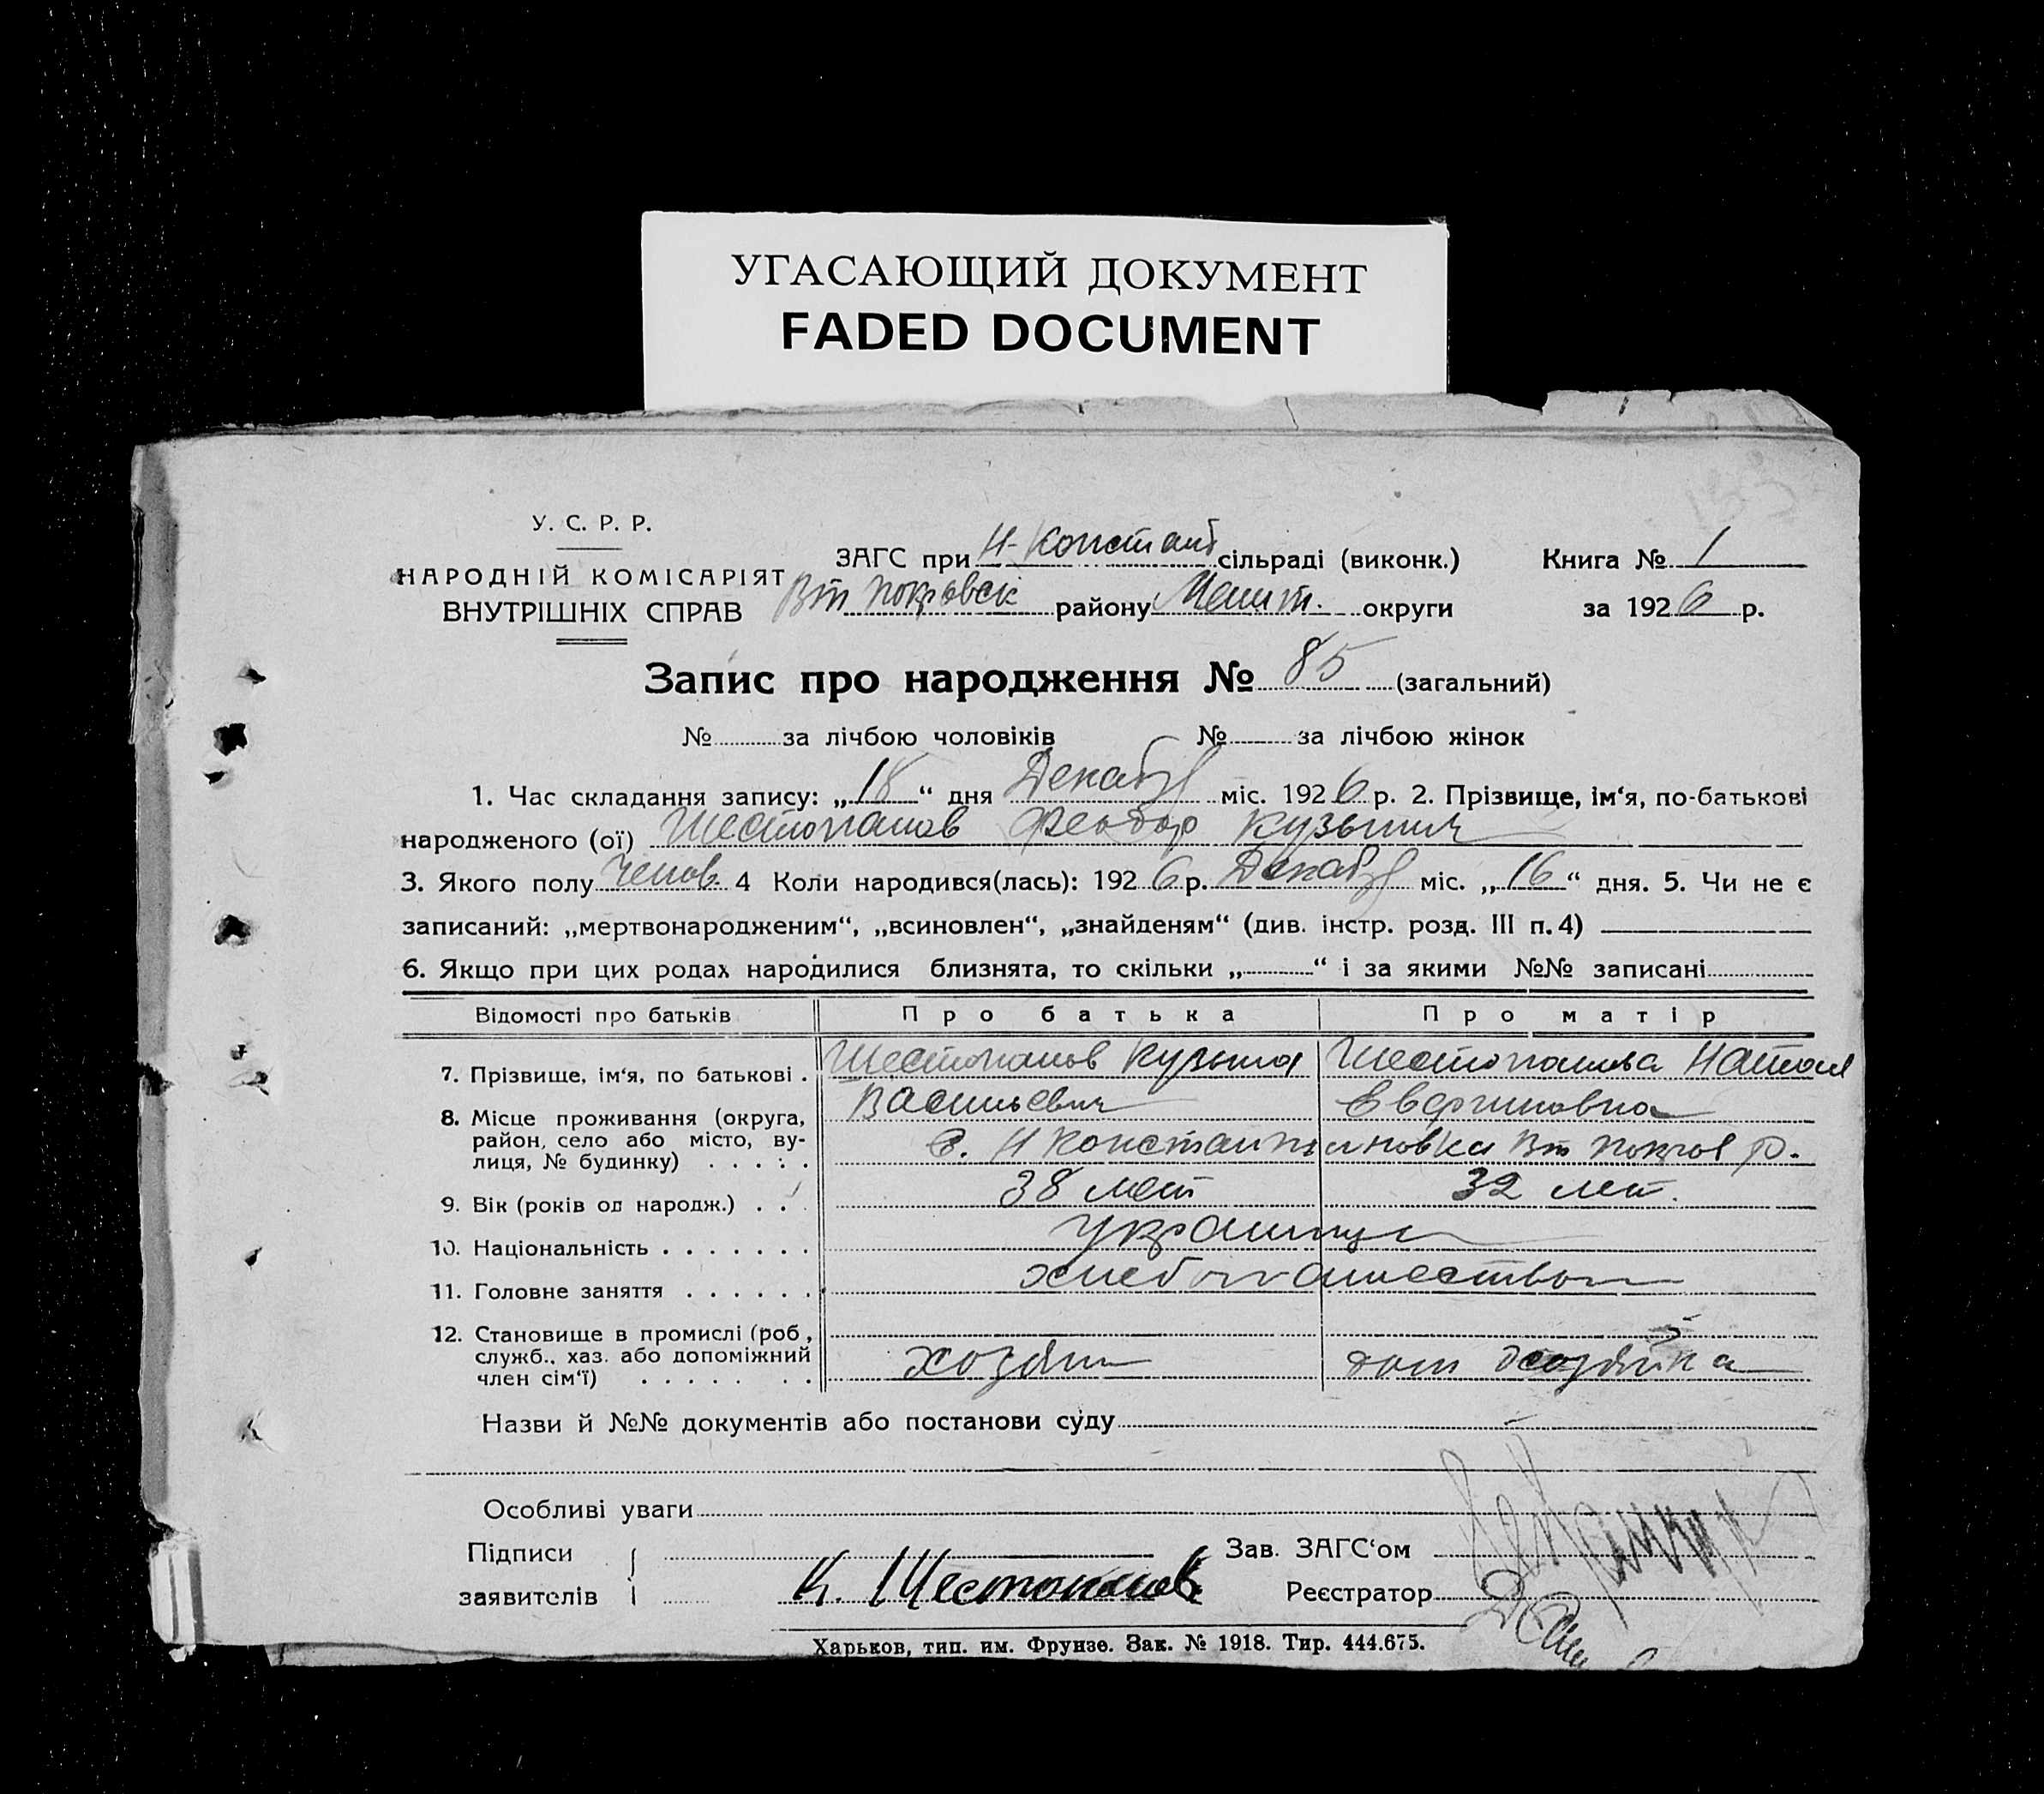 УГАСАЮЩИЙ ДОКУМЕНТ
FADED DOCUMENT
У. С. Р. Р.
НАРОДНІЙ КОМІСАРІЯТ
ВНУТРІШНІХ СПРАВ
ЗАГС при Н-Констант сільраді (виконк.) Книга № 1
Вт Покровск району Меліт. округи за 1926 р.
Запис про народження № 85 (загальний)
№ за лічбою чоловіків № за лічбою жінок
1. Час складання запису: „18“ дня Декабр міс. 1926 р. 2. Прізвище, ім‘я, по-батькові
народженого (ої) Шестопалов Феодор Кузьмич
3. Якого полу Челов. 4 Коли народився(лась): 1926 р. Декабр міс. „16“ дня. 5. Чи не є
записаний: „мертвонародженим“, „всиновлен“, „знайденям“ (див. інстр. розд. III п. 4)
6. Якщо при цих родах народилися близнята, то скільки „ “ і за якими №№ записані
Відомості про батьків Про батька Про матір
7. Прізвище, ім‘я, по батькові . Шестопалов Кузьма Шестопалова Натал
Васильевич
8. Місце проживання (округа,
район, село або місто, ву-
лиця, № будинку) . . . . . С. Н Константиновка Вт Покров р.
9. Вік (років од народж.) . . . 38 лет 32 лет.
10. Національність . . . . . . . Украинцы
11. Головне заняття . . . . . . . хлебопашеством
12. Становище в промислі (роб.,
служб., хаз. або допоміжний
член сім‘ї) . . . . . . . . хозяин дом хозяйка
Назви й №№ документів або постанови суду
Особливі уваги
Підписи
заявителів К. Шестопалов
Зав. ЗАГС‘ом
Реєстратор
Харьков, тип. им. Фрунзе. Зак. № 1918. Тир. 444.675.